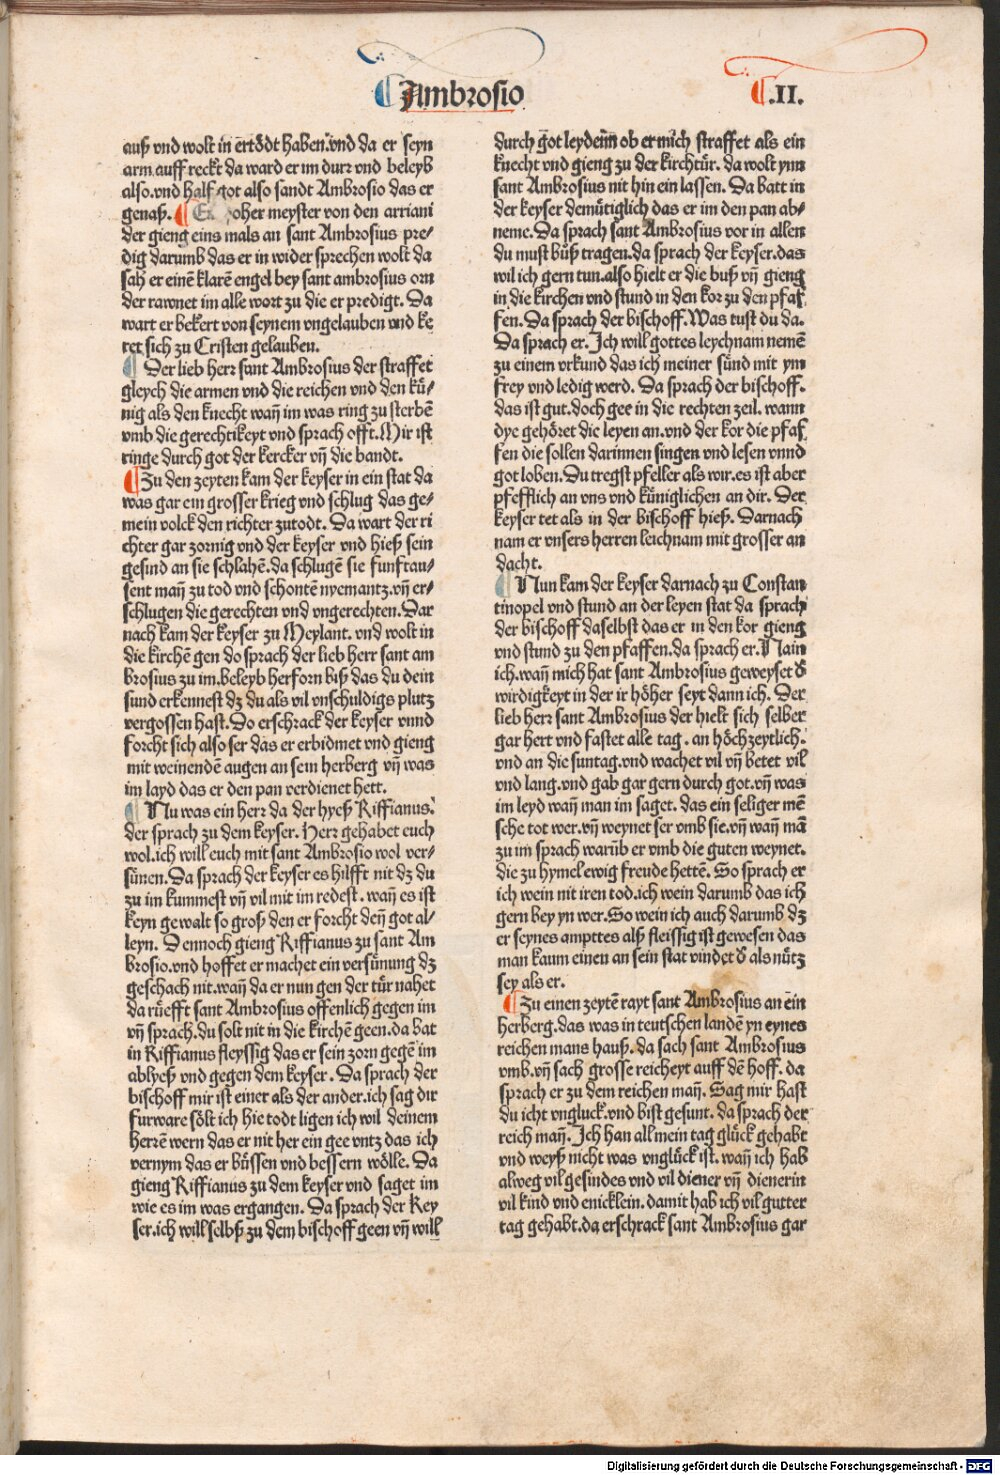 Ambrosio
.II.
auß vnd wolt in ertödt haben.vnd da er seyn
arm auff reckt da ward er im durz vnd beleyb
also.vnd half got also sandt Ambrosio das er
genaß. hoher meyster von den arriani
der gieng eins mals an sant Ambrosius pre⸗
dig darumb das er in wider sprechen wolt da
sah er einē klarē engel bey sant ambrosius orn
der rawnet im alle wort zu die er predigt. Da
wart er bekert von seynem vngelauben vnd ke
ret sich zu Cristen gelauben.
Der lieb herr sant Ambrosius der straffet
gleych die armen vnd die reichen vnd den kü⸗
nig als den knecht wañ im was ring zu sterbē
vmb die gerechtikeyt vnd sprach offt.Mir ist
ringe durch got der kercker vñ die bandt.
Zu den zeyten kam der keyser in ein stat da
was gar ein grosser krieg vnd schlug das ge⸗
mein volck den richter zutodt. Da wart der ri
chter gar zornig vnd der keyser vnd hieß sein
gesind an sie schlahē.da schlugē sie funftau⸗
sent mañ zu tod vnd schontē nyemantz.vñ er⸗
schlugen die gerechten vnd vngerechten.Dar
nach kam der keyser zu Meylant. vnd wolt in
die kirchē gen do sprach der lieb herr sant am
brosius zu im.beleyb herforn biß das du dein
sund erkennest dz du als vil vnschuldigs plutz
vergossen hast.Do erschrack der keyser vnnd
forcht sich also ser das er erbidmet vnd gieng
mit weinendē augen an sein herberg vñ was
im layd das er den pan verdienet hett.
Nu was ein herr da der hyeß Riffianus.
der sprach zu dem keyser. Herr gehabet euch
wol.ich will euch mit sant Ambrosio wol ver⸗
sünen.Da sprach der keyser es hilfft nit dz du
zu im kummest vñ vil mit im redest. wañ es ist
keyn gewalt so groß den er forcht deñ got al⸗
leyn. Dennoch gieng Riffianus zu sant Am
brosio.vnd hoffet er machet ein versünung dz
geschach nit.wañ da er nun gen der tür nahet
da rüefft sant Ambrosius offenlich gegen im
vñ sprach.du solt nit in die kirchē geen.da bat
in Riffianus fleyssig das er sein zorn gegē im
ablyeß vnd gegen dem keyser. Da sprach der
bischoff mir ist einer als der ander.ich sag dir
furware sölt ich hie todt ligen ich wil deinem
herrē wern das er nit her ein gee vntz das ich
vernym das er büssen vnd bessern wölle. Da
gieng Riffianus zu dem keyser vnd saget im
wie es im was ergangen. Da sprach der Key
ser.ich will selbß zu dem bischoff geen vñ will
durch got leydenn ob er mich straffet als ein
knecht vnd gieng zu der kirchtür. da wolt ynn
sant Ambrosius nit hin ein lassen. Da batt in
der keyser demütiglich das er im den pan ab⸗
neme.Da sprach sant Ambrosius vor in allen
du must büß tragen.da sprach der keyser.das
wil ich gern tun.also hielt er die buß vñ gieng
in die kirchen vnd stund in den kor zu den pfaf
fen. Da sprach der bischoff.Was tust du da.
Da sprach er. Ich will gottes leychnam nemē
zu einem vrkund das ich meiner sünd mit ym
frey vnd ledig werd. Da sprach der bischoff.
das ist gut.doch gee in die rechten zeil. wann
dye gehöret die leyen an.vnd der kor die pfaf
fen die sollen darinnen singen vnd lesen vnnd
got loben.Du tregst pfeller als wir.es ist aber
pfefflich an vns vnd küniglichen an dir. Der
keyser tet als in der bischoff hieß. Darnach
nam er vnsers herren leichnam mit grosser an
dacht.
Nun kam der keyser darnach zu Constan
tinopel vnd stund an der leyen stat da sprach
der bischoff daselbst das er in den kor gieng
vnd stund zu den pfaffen.da sprach er.Nain
ich.wañ mich hat sant Ambrosius geweyset d̕
wirdigkeyt in der ir höher seyt dann ich. Der
lieb herr sant Ambrosius der hielt sich selber
gar hert vnd fastet alle tag. an höchzeytlich.
vnd an die suntag.vnd wachet vil vñ betet vil
vnd lang.vnd gab gar gern durch got.vñ was
im leyd wañ man im saget. das ein seliger mē
sche tot wer.vñ weynet ser vmb sie.vñ wañ mā
zu im sprach warūb er vmb die guten weynet.
die zu hymel ewig freude hettē. So sprach er
ich wein nit iren tod.ich wein darumb das ich
gern bey yn wer.So wein ich auch darumb dz
er seynes ampttes alß fleissig ist gewesen das
man kaum einen an sein stat vindet d̕ als nütz
sey als er.
Zu einen zeytē rayt sant Ambrosius an ein
herberg.das was in teutschen landē yn eynes
reichen mans hauß. da sach sant Ambrosius
vmb.vñ sach grosse reicheyt auff dē hoff. da
sprach er zu dem reichen mañ. Sag mir hast
du icht vngluck.vnd bist gesunt. da sprach der
reich mañ. Ich han all mein tag glück gehabt
vnd weyß nicht was vnglück ist. wañ ich hab
alweg vil gesindes vnd vil diener vñ dienerin
vil kind vnd enicklein.damit hab ich vil gutter
tag gehabt.da erschrack sant Ambrosius gar
Digitalisierung gefördert durch die Deutsche Forschungsgemeinschaft - DFG